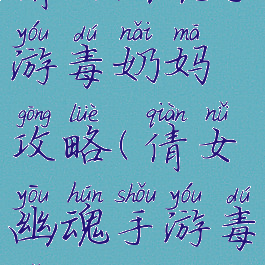 yóu dú nǎi mā
游毒奶妈
gōng lüè qiàn nǚ
攻略(倩女
yōu hún shǒu yóu dú
幽魂手游毒